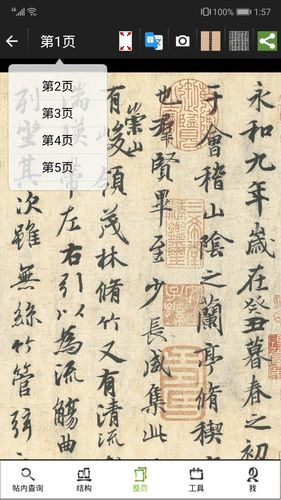 4G 50% 1:57
第1页
第2页
第3页
第4页
第5页
永和九年歲在癸丑暮春之初
于會稽山陰之蘭亭脩禊
也羣賢畢至少長咸集此
有崇山峻領茂林脩竹又有清流
湍暎帶左右引以為流觴曲
列坐其次雖無絲竹管弦
帖内查询 结构 整页 工具 我